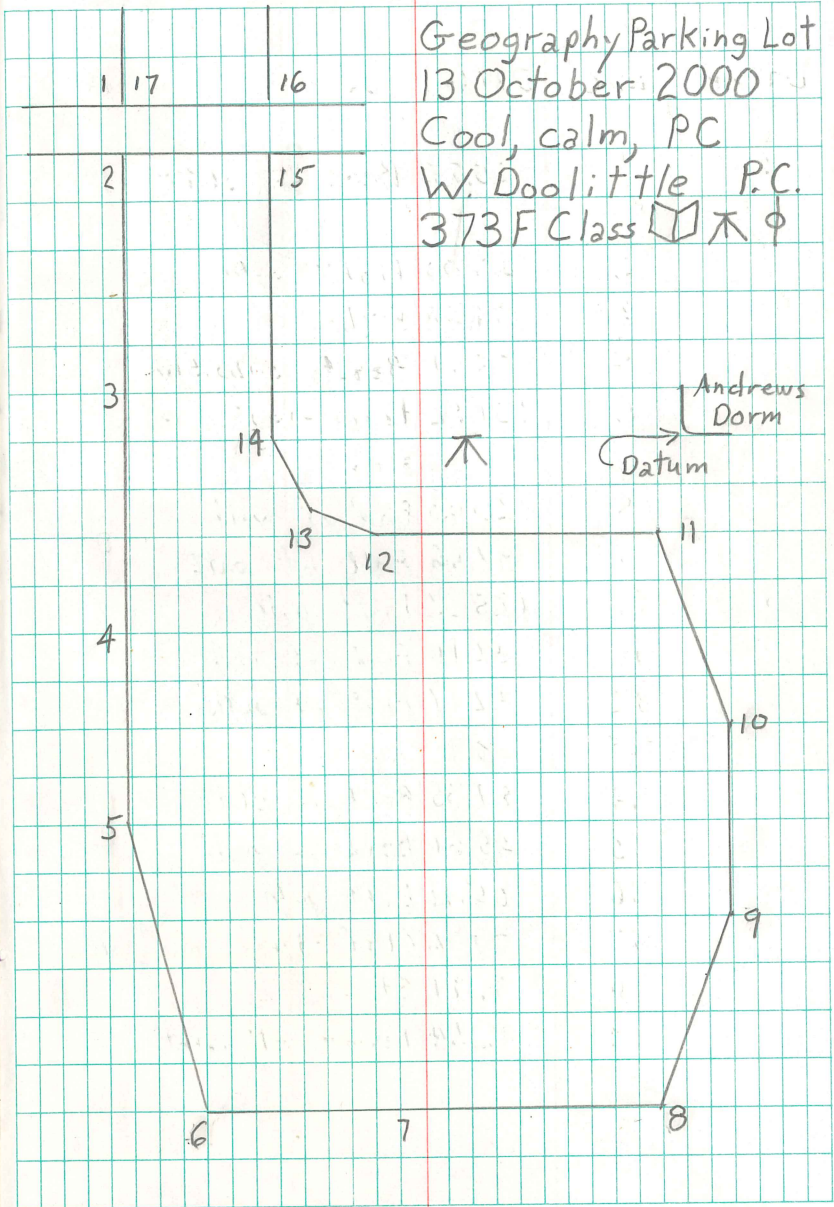 Geography Parking Lot
13 October 2000
Cool, calm, PC
W. Doolittle P.C.
373F Class
1 17 16
2 15
3
Andrews
Dorm
14
Datum
13
12
11
4
10
5
9
6
7
8